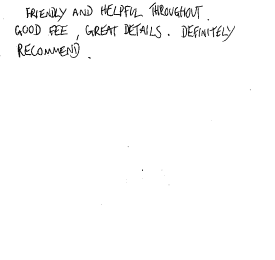 FRIENDLY AND HELPFUL THROUGHOUT.
GOOD FEE, GREAT DETAILS. DEFINITELY
RECOMMEND.